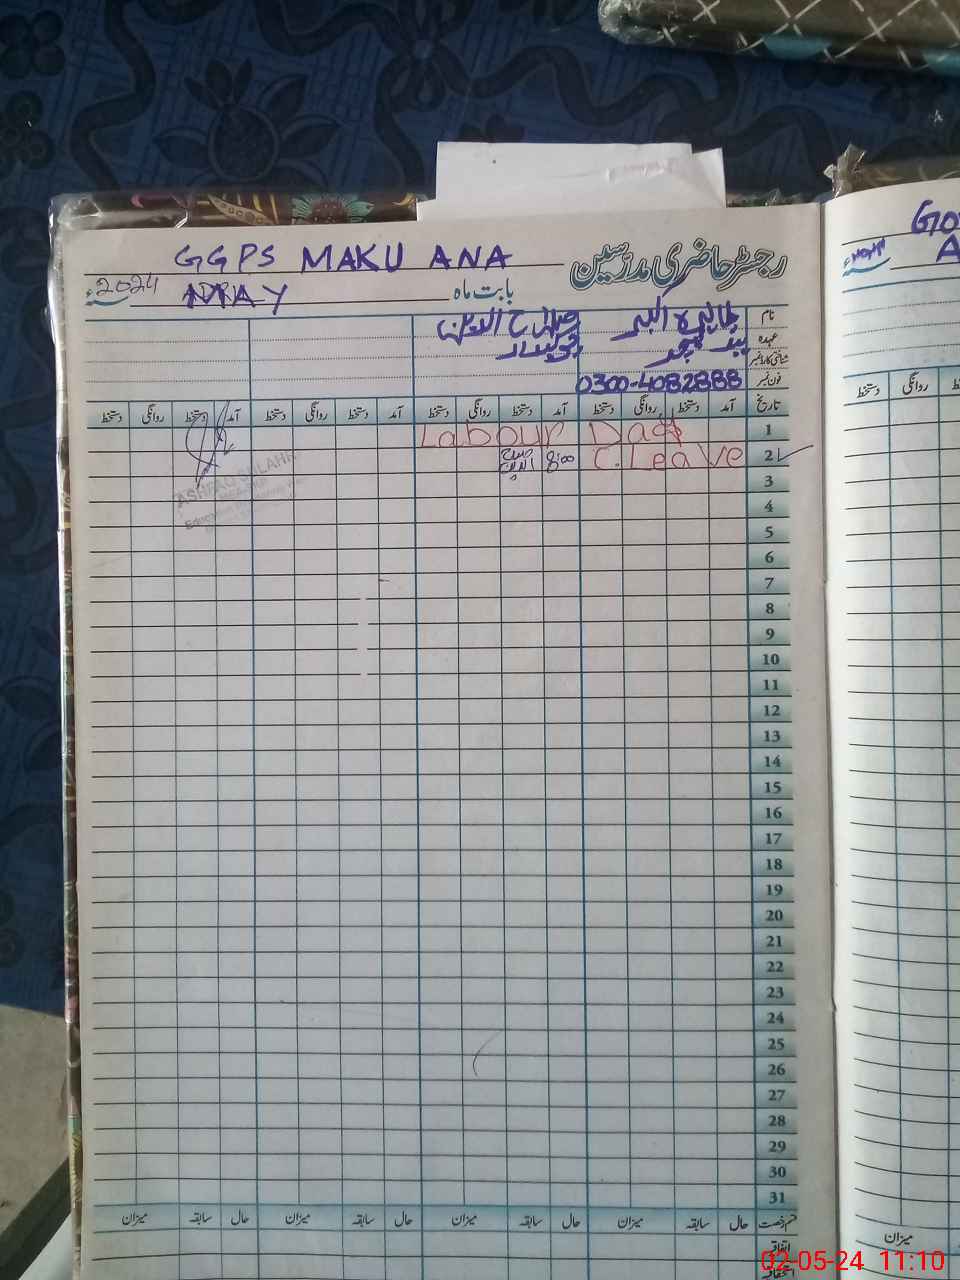 GGPS MAKU ANA رجسٹر حاضری مدرسین
بابت ماہ MAY 2024ء
نام طاہرہ اکبر صلاح الدین
عہدہ ہیڈ ٹیچر چوکیدار
شناختی کارڈ نمبر
فون نمبر 0300-4082888
تاریخ آمد دستخط روانگی دستخط آمد دستخط روانگی دستخط آمد دستخط روانگی دستخط آمد دستخط روانگی دستخط
1 Labour Day
2 C. Leave 8:00 صلاح الدین
ASHFAQ
3
4
5
6
7
8
9
10
11
12
13
14
15
16
17
18
19
20
21
22
23
24
25
26
27
28
29
30
31
قسم رخصت حال سابقہ میزان حال سابقہ میزان حال سابقہ میزان حال سابقہ میزان
اتفاقیہ
استحقاقیہ
GO
A
2024ء
دستخط روانگی
میزان
02-05-24 11:10